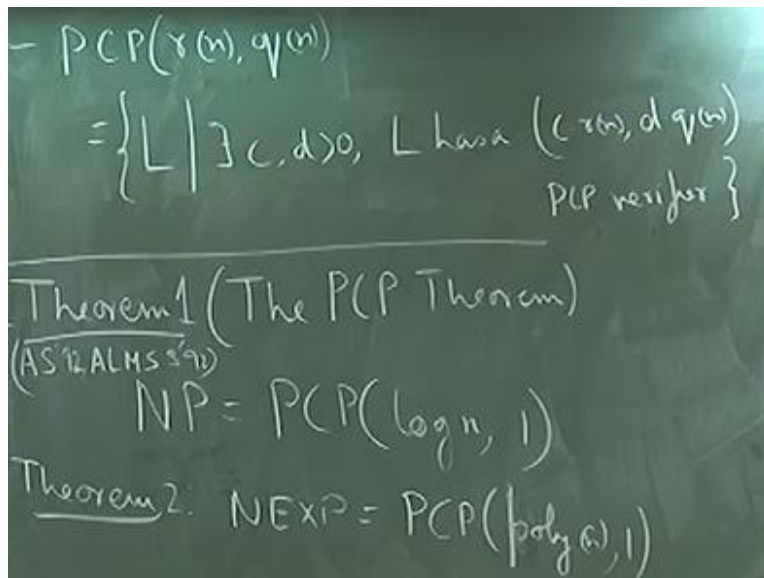 - PCP(r(n), q(n))
= { L | ∃ c, d>0, L has a (c r(n), d q(n))
PCP verifier }
Theorem 1 (The PCP Theorem)
(AS'92, ALMSS'92)
NP = PCP(log n, 1)
Theorem 2: NEXP = PCP(poly(n), 1)